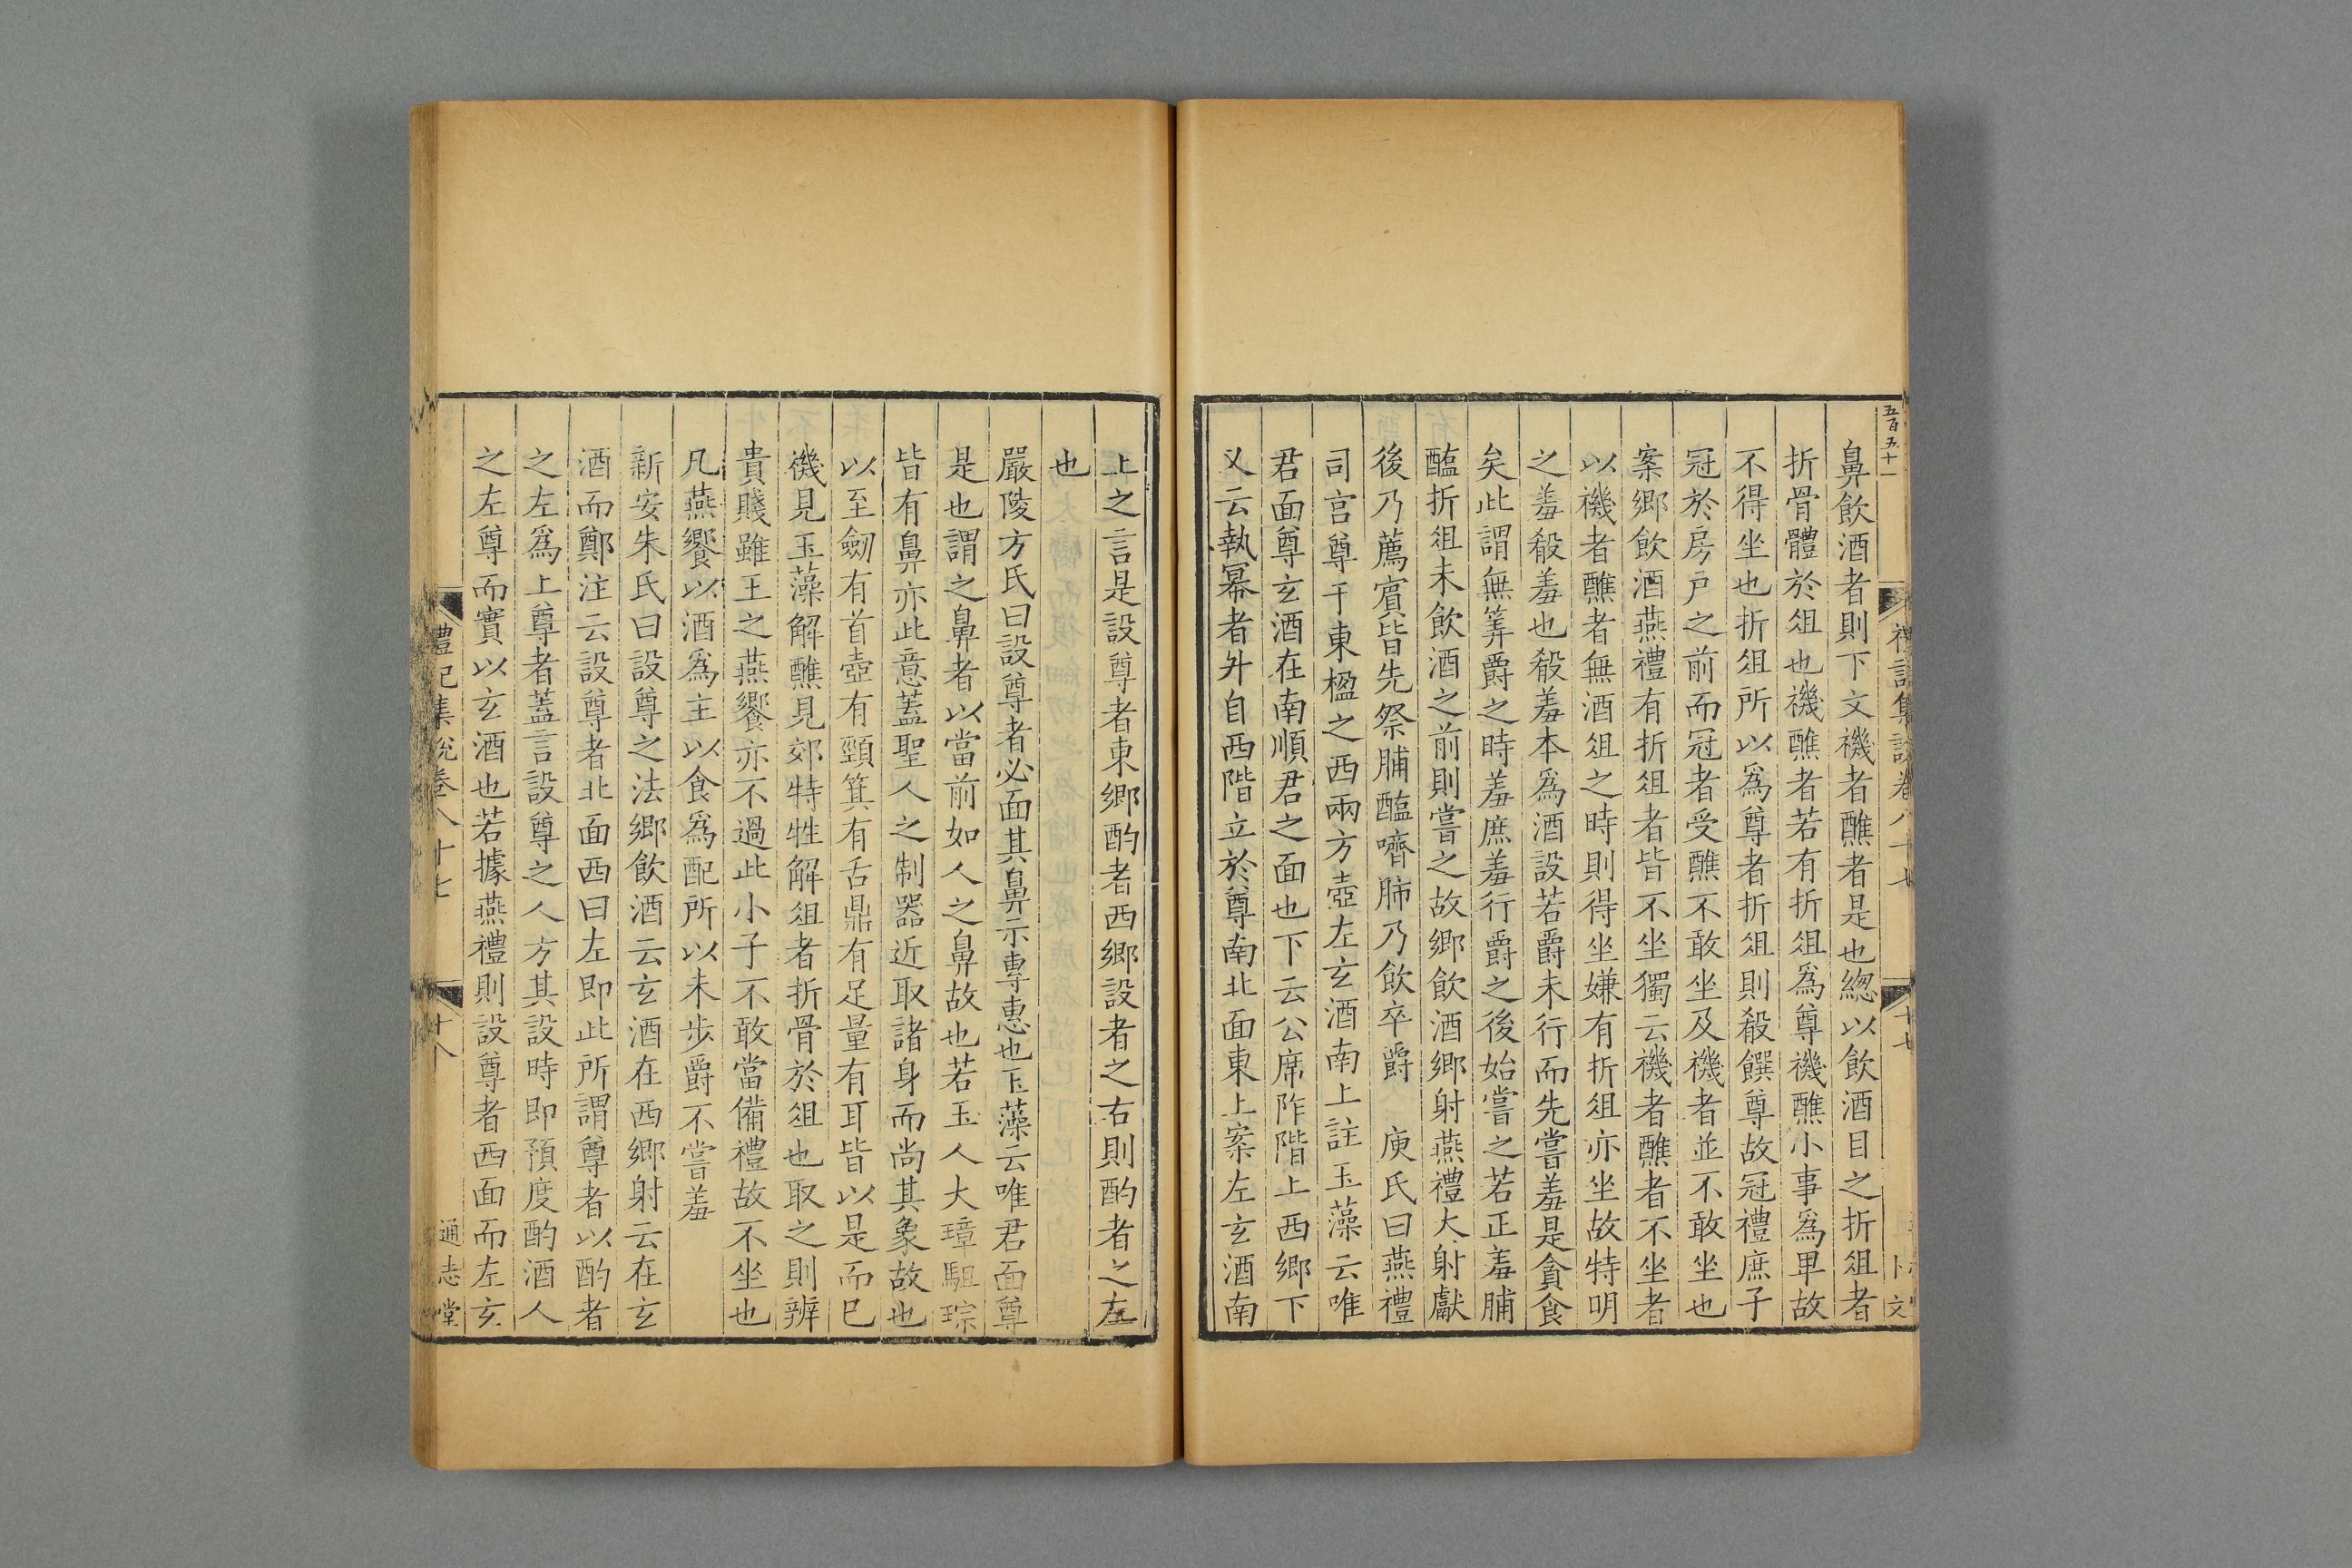 五百五十一
禮記集說卷八十七
十七
卜文
鼻飲酒者則下文禨者醮者是也緫以飲酒目之折俎者
折骨體於俎也禨醮者若有折俎爲尊禨醮小事爲卑故
不得坐也折俎所以爲尊者折俎則殽饌尊故冠禮庶子
冠於房戸之前而冠者受醮不敢坐及禨者並不敢坐也
案鄉飲酒燕禮有折俎者皆不坐獨云禨者醮者不坐者
以禨者醮者無酒俎之時則得坐嫌有折俎亦坐故特明
之羞殽羞也殽羞本爲酒設若爵未行而先嘗羞是貪食
矣此謂無筭爵之時羞庶羞行爵之後始嘗之若正羞脯
醢折俎未飲酒之前則嘗之故鄉飲酒鄉射燕禮大射獻
後乃薦賓皆先祭脯醢嚌肺乃飲卒爵　庾氏曰燕禮
司宮尊于東楹之西兩方壺左玄酒南上註玉藻云唯
君面尊玄酒在南順君之面也下云公席阼階上西鄉下
又云執冪者升自西階立於尊南北面東上案左玄酒南
上之言是設尊者東鄉酌者西鄉設者之右則酌者之左
也
嚴陵方氏曰設尊者必面其鼻示專惠也玉藻云唯君面尊
是也謂之鼻者以當前如人之鼻故也若玉人大璋駔琮
皆有鼻亦此意蓋聖人之制器近取諸身而尚其象故也
以至劒有首壺有頸箕有舌鼎有足量有耳皆以是而巳
禨見玉藻解醮見郊特牲解俎者折骨於俎也取之則辨
貴賤雖王之燕饗亦不過此小子不敢當備禮故不坐也
凡燕饗以酒爲主以食爲配所以未步爵不嘗羞
新安朱氏曰設尊之法鄉飲酒云玄酒在西鄉射云在玄
酒而鄭注云設尊者北面西曰左即此所謂尊者以酌者
之左爲上尊者蓋言設尊之人方其設時即預度酌酒人
之左尊而實以玄酒也若據燕禮則設尊者西面而左玄
禮記集說卷八十七
十八
通志堂